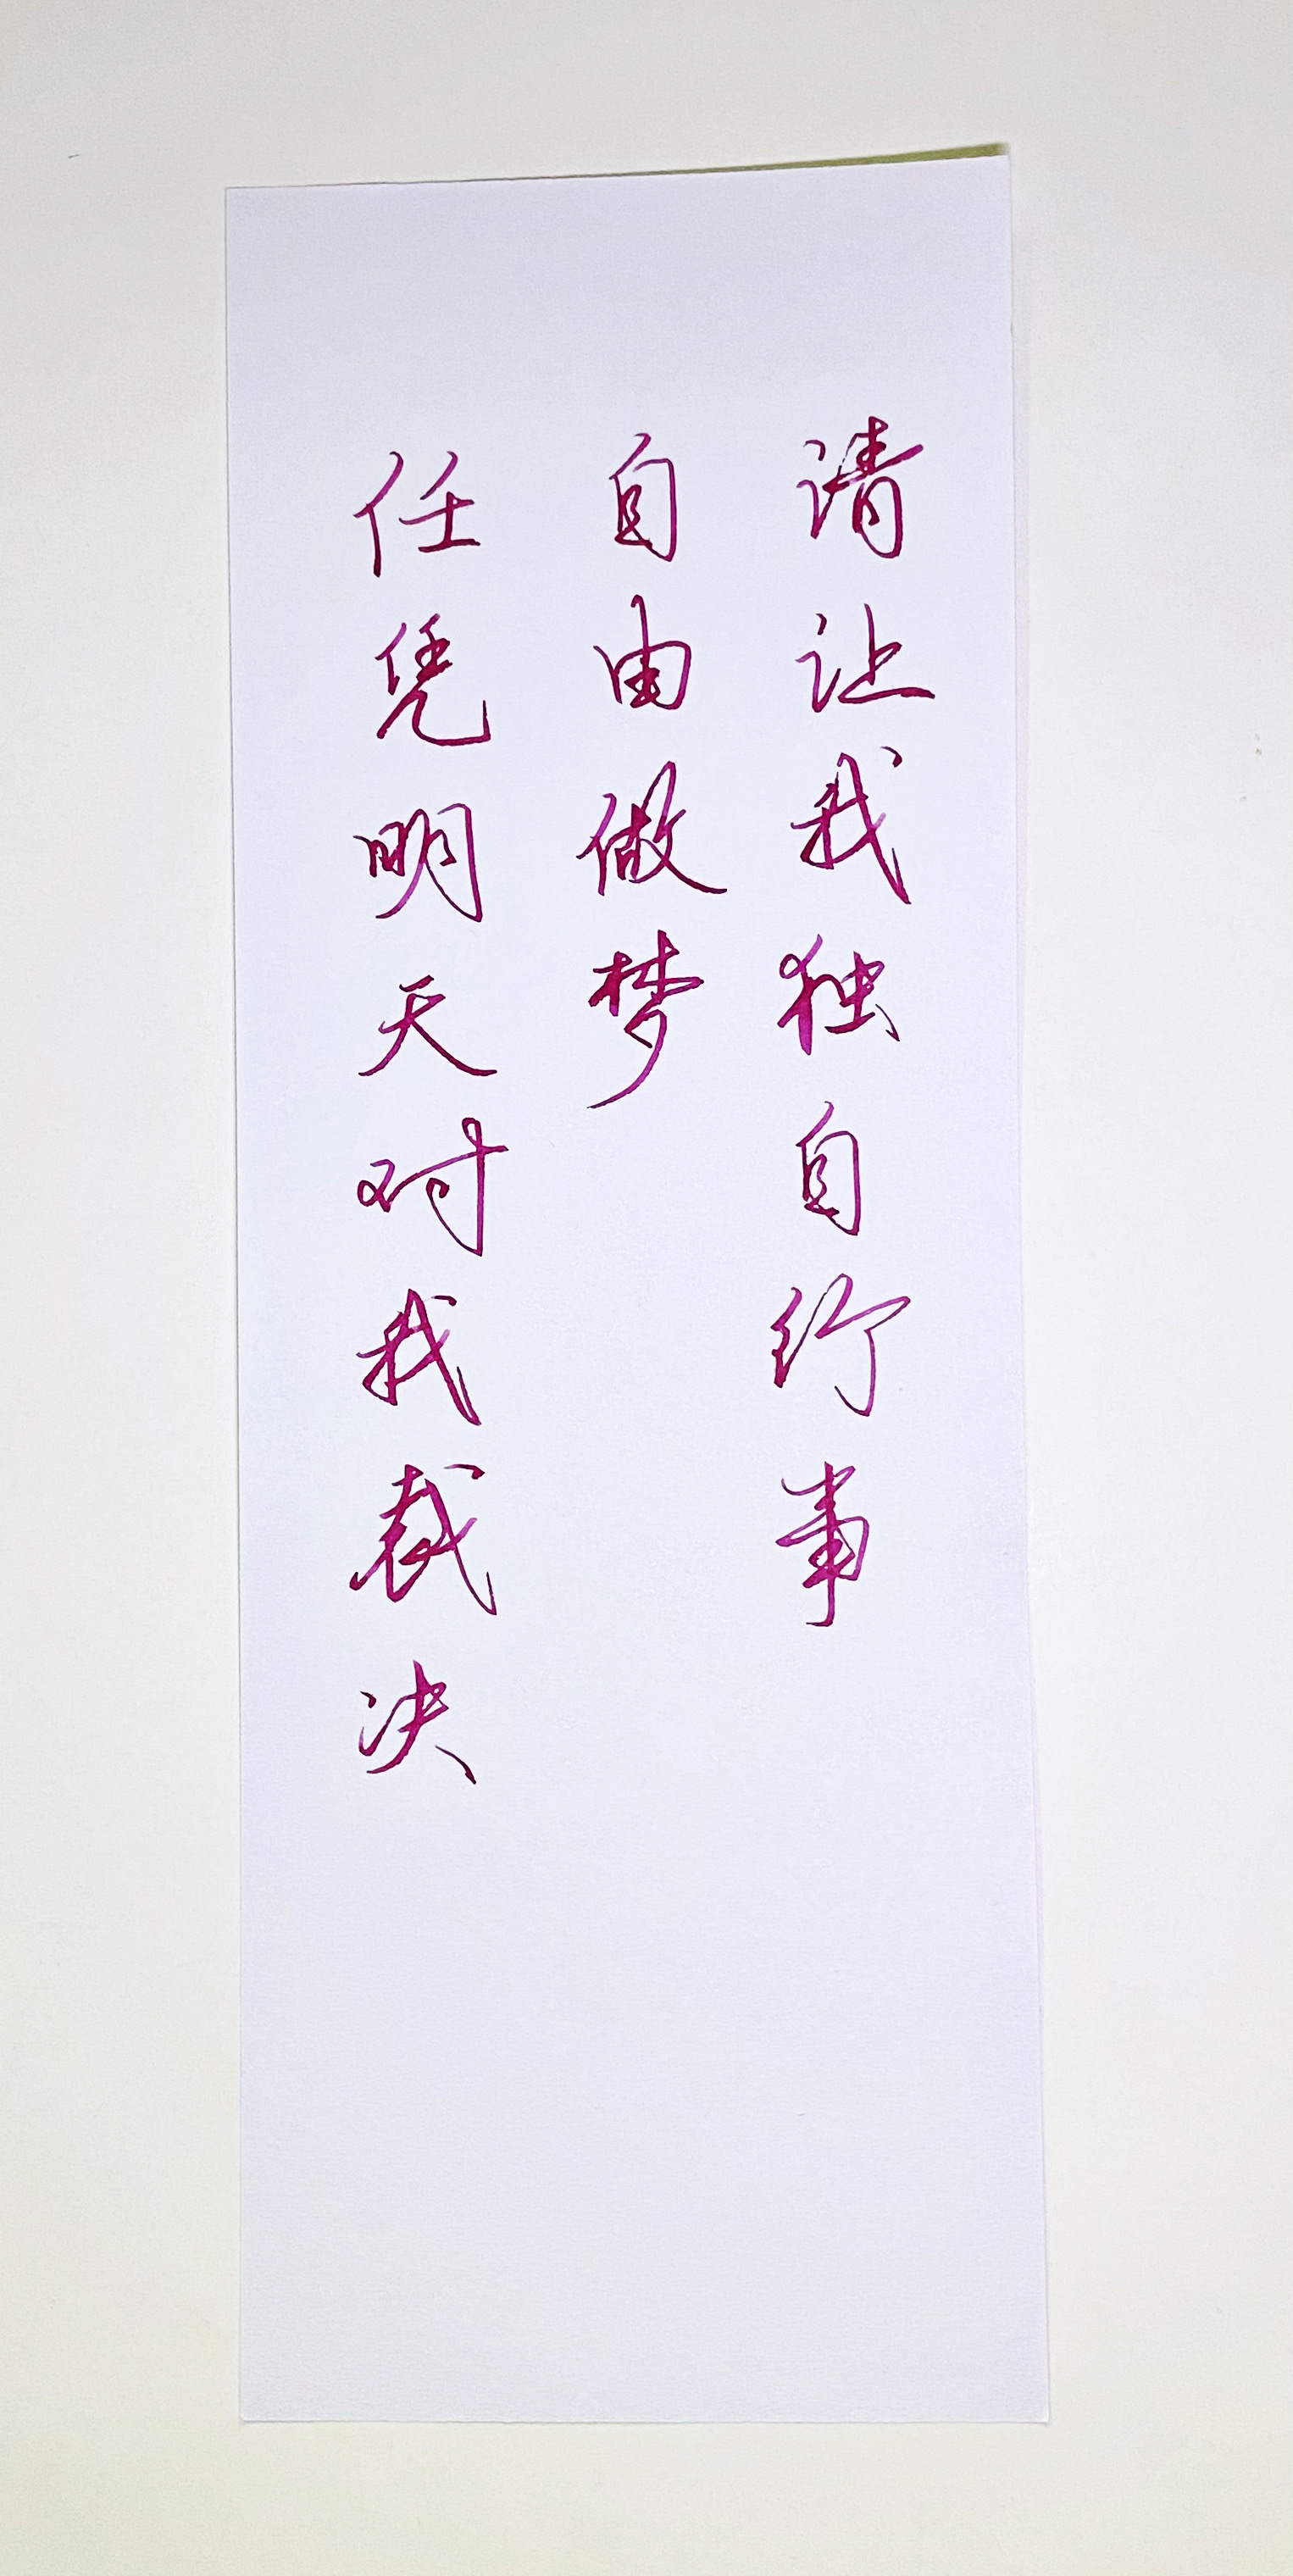 请让我独自行事
自由做梦
任凭明天对我裁决